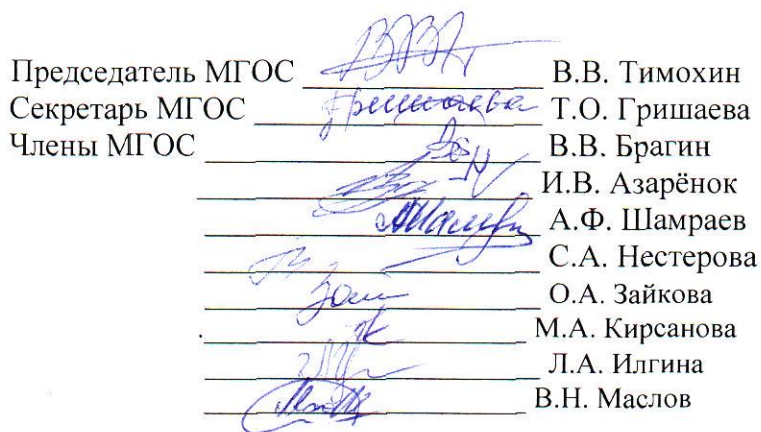 Председатель МГОС В.В. Тимохин
Секретарь МГОС Гришаева Т.О. Гришаева
Члены МГОС В.В. Брагин
И.В. Азарёнок
А.Ф. Шамраев
С.А. Нестерова
О.А. Зайкова
М.А. Кирсанова
Л.А. Илгина
В.Н. Маслов